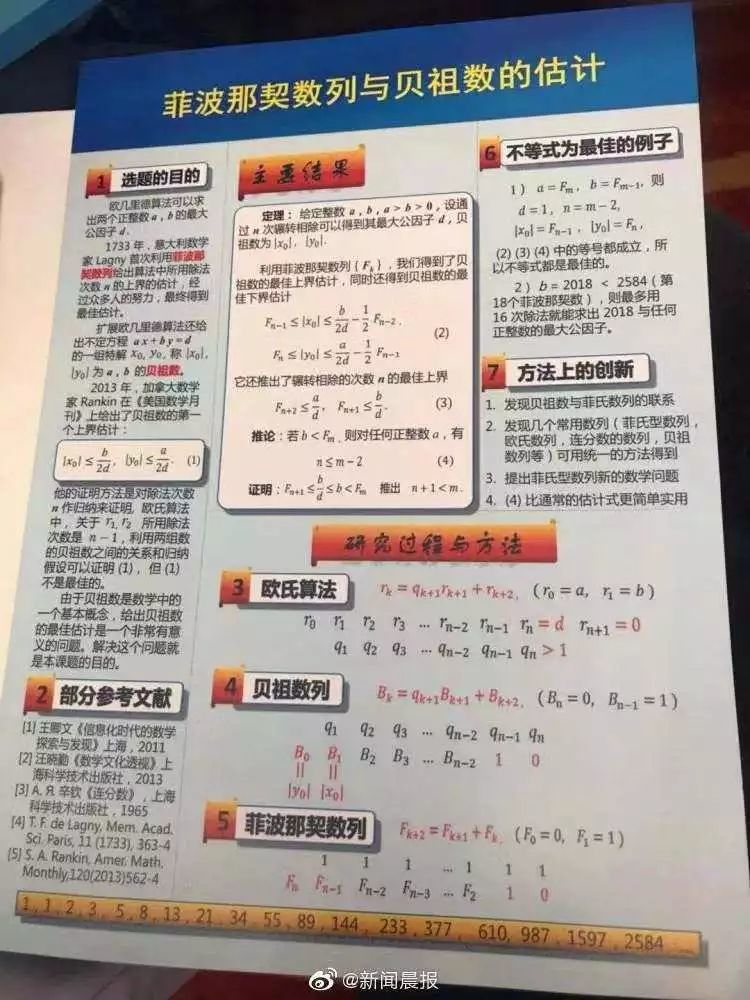 菲波那契数列与贝祖数的估计
1 选题的目的
欧几里德算法可以求
出两个正整数 a , b 的最大
公因子 d .
1733 年，意大利数学
家 Lagny 首次利用菲波那
契数列给出算法中所用除法
次数 n 的上界的估计，经
过众多人的努力，最终得到
最佳估计。
扩展欧几里德算法还给
出不定方程 ax + by = d
的一组特解 x₀, y₀, 称 |x₀|,
|y₀| 为 a , b 的贝祖数。
2013 年，加拿大数学
家 Rankin 在《美国数学月
刊》上给出了贝祖数的第一
个上界估计：
|x₀| ≤ b/2d, |y₀| ≤ a/2d. (1)
他的证明方法是对除法次数
n 作归纳来证明, 欧氏算法
中，关于 r₁, r₂ 所用除法
次数是 n − 1 , 利用两组数
的贝祖数之间的关系和归纳
假设可以证明 (1) , 但 (1)
不是最佳的。
由于贝祖数是数学中的
一个基本概念，给出贝祖数
的最佳估计是一个非常有意
义的问题。解决这个问题就
是本课题的目的。
2 部分参考文献
[1] 王卿文《信息化时代的数学
探索与发现》上海，2011
[2] 汪晓勤《数学文化透视》上
海科学技术出版社，2013
[3] A. Я. 辛钦《连分数》，上海
科学技术出版社，1965
[4] T. F. de Lagny, Mem. Acad.
Sci. Paris, 11 (1733), 363-4
[5] S. A. Rankin, Amer. Math.
Monthly,120(2013)562-4
主要结果
定理：给定整数 a , b , a > b > 0 , 设通
过 n 次辗转相除可以得到其最大公因子 d , 贝
祖数为 |x₀|, |y₀|.
利用菲波那契数列 {Fₖ} , 我们得到了贝
祖数的最佳上界估计，同时还得到贝祖数的最
佳下界估计
Fₙ₋₁ ≤ |x₀| ≤ b/2d − 1/2 Fₙ₋₂ .
(2)
Fₙ ≤ |y₀| ≤ a/2d − 1/2 Fₙ₋₁
它还推出了辗转相除的次数 n 的最佳上界
Fₙ₊₂ ≤ a/d, Fₙ₊₁ ≤ b/d. (3)
推论：若 b < Fₘ 则对任何正整数 a , 有
n ≤ m − 2 (4)
证明：Fₙ₊₁ ≤ b/d ≤ b < Fₘ 推出 n + 1 < m .
6 不等式为最佳的例子
1 ) a = Fₘ , b = Fₘ₋₁, 则
d = 1 , n = m − 2 ,
|x₀| = Fₙ₋₁ , |y₀| = Fₙ ,
(2) (3) (4) 中的等号都成立，所
以不等式都是最佳的。
2 ) b = 2018 < 2584 ( 第
18个菲波那契数 ) , 则最多用
16 次除法就能求出 2018 与任何
正整数的最大公因子。
7 方法上的创新
1. 发现贝祖数与菲氏数列的联系
2. 发现几个常用数列 ( 菲氏型数列 ,
欧氏数列，连分数的数列，贝祖
数列等 ) 可用统一的方法得到
3. 提出菲氏型数列新的数学问题
4. (4) 比通常的估计式更简单实用
研究过程与方法
3 欧氏算法 rₖ = qₖ₊₁rₖ₊₁ + rₖ₊₂, ( r₀ = a, r₁ = b )
r₀ r₁ r₂ r₃ … rₙ₋₂ rₙ₋₁ rₙ = d rₙ₊₁ = 0
q₁ q₂ q₃ … qₙ₋₂ qₙ₋₁ qₙ > 1
4 贝祖数列 Bₖ = qₖ₊₁Bₖ₊₁ + Bₖ₊₂, ( Bₙ = 0, Bₙ₋₁ = 1 )
q₁ q₂ q₃ … qₙ₋₂ qₙ₋₁ qₙ
B₀ B₁ B₂ B₃ … Bₙ₋₂ 1 0
|| ||
|y₀| |x₀|
5 菲波那契数列 Fₖ₊₂ = Fₖ₊₁ + Fₖ, ( F₀ = 0, F₁ = 1 )
1 1 1 … 1 1 1
Fₙ Fₙ₋₁ Fₙ₋₂ Fₙ₋₃ … F₂ 1 0
1 , 1 , 2 , 3 , 5 , 8 , 13 , 21 , 34 , 55 , 89 , 144 , 233 , 377 , 610, 987 , 1597 , 2584
@新闻晨报